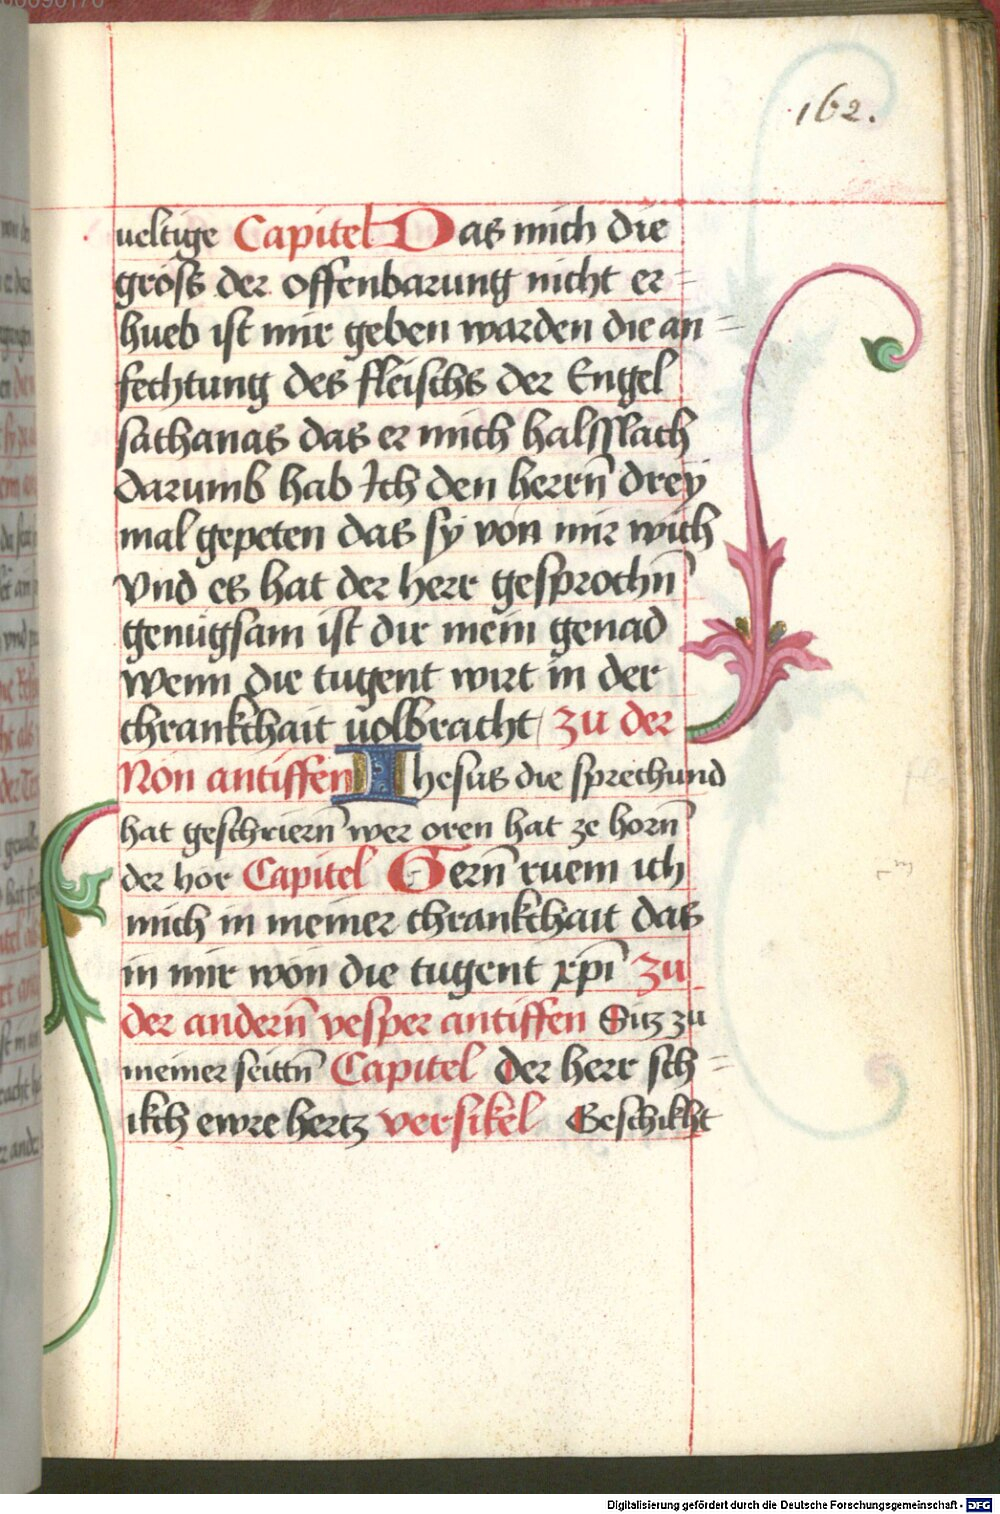 162.
ueltige Capitel Das mich die
gröss der offenbarung nicht er=
hueb ist mir geben warden die an=
fechtung des fleischs der Engel
sathanas das er mich halsslach
darumb hab Ich den herrn̄ drey
mal gepeten das sy von mir wich
Vnd es hat der herr gesprochn̄
genügsam ist dir mein genad
Wenn die tugent wirt in der
chrankchait uolbracht zu der
Non antiffen Ihesus die sprechund
hat geschriern̄ wer oren hat ze horn̄
der hör Capitel Gern̄ ruem ich
mich in meiner chrankchait das
in mir won die tugent xp̄i zu
der andern̄ vesper antiffen Sitz zu
meiner seittn̄ Capitel der herr sch=
ikch ewre hertz versikel Geschikht
Digitalisierung gefördert durch die Deutsche Forschungsgemeinschaft - DFG